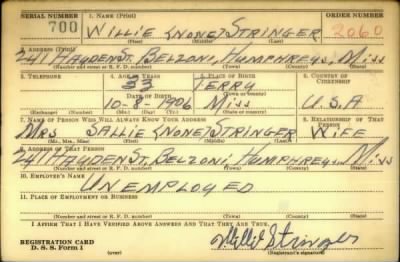 SERIAL NUMBER 1. NAME (Print) ORDER NUMBER
700 WILLIE (NONE) STRINGER 2060
(First) (Middle) (Last)
2. ADDRESS (Print)
241 HAYDEN ST. BELZONI, HUMPHREYS, MISS
(Number and street or R. F. D. number) (Town) (County) (State)
3. TELEPHONE 4. AGE IN YEARS 5. PLACE OF BIRTH 6. COUNTRY OF CITIZENSHIP
33 TERRY
DATE OF BIRTH (Town or county)
10-8-1906 MISS U.S.A
(Exchange) (Number) (Mo.) (Day) (Yr.) (State or country)
7. NAME OF PERSON WHO WILL ALWAYS KNOW YOUR ADDRESS 8. RELATIONSHIP OF THAT PERSON
MRS SALLIE (NONE) STRINGER WIFE
(Mr., Mrs., Miss) (First) (Middle) (Last)
9. ADDRESS OF THAT PERSON
241 HAYDEN ST. BELZONI, HUMPHREYS, MISS
(Number and street or R. F. D. number) (Town) (County) (State)
10. EMPLOYER'S NAME
UNEMPLOYED
11. PLACE OF EMPLOYMENT OR BUSINESS
(Number and street or R. F. D. number) (Town) (County) (State)
I AFFIRM THAT I HAVE VERIFIED ABOVE ANSWERS AND THAT THEY ARE TRUE.
REGISTRATION CARD Willie Stringer
D. S. S. Form 1 (over) (Registrant's signature)